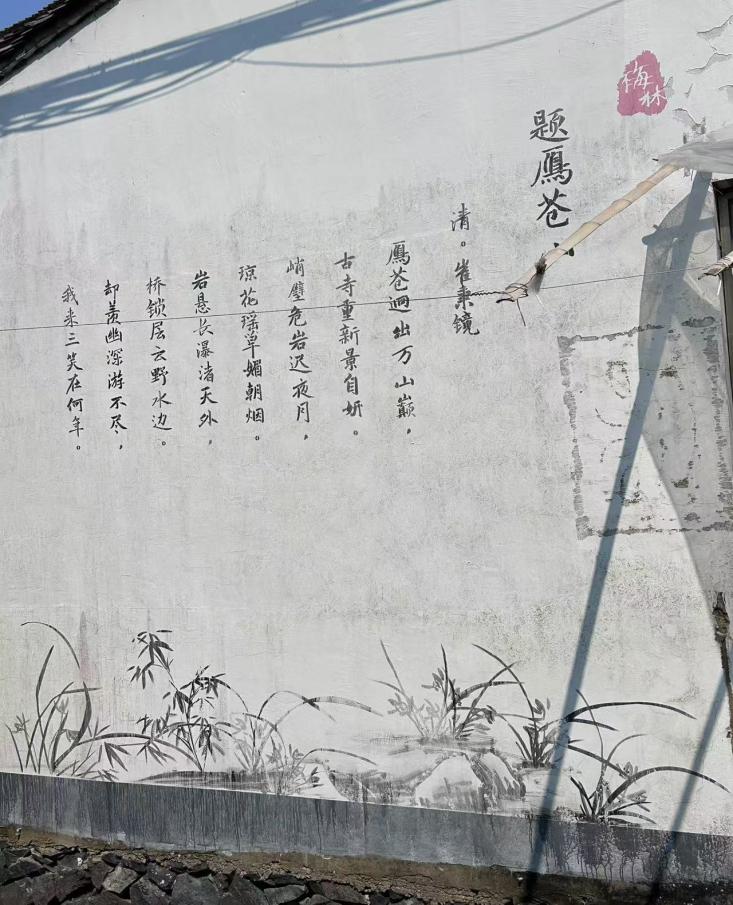 梅林
题雁苍
清。崔秉镜
雁苍迥出万山巅，
古寺重新景自妍。
峭壁危岩迟夜月，
琼花瑶草媚朝烟。
岩悬长瀑渚天外，
桥锁层云野水边。
却羡幽深游不尽，
我来三笑在何年。